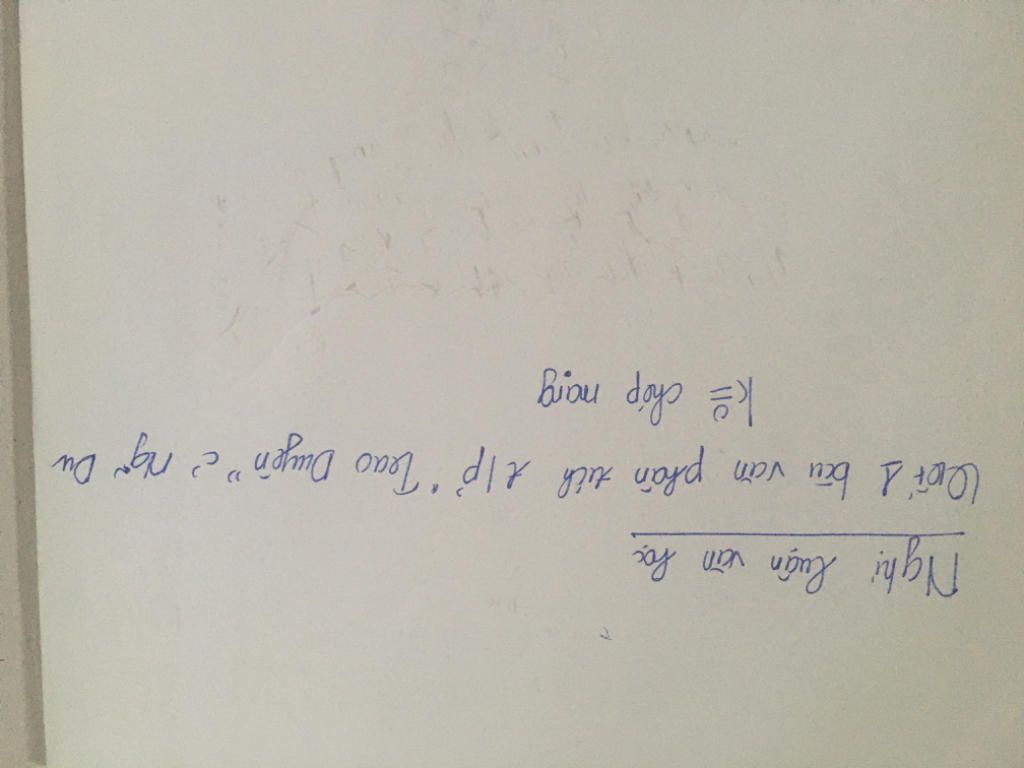 Nghị luận văn học
Viết 1 bài văn phân tích t/p "Trao Duyên" c̉ Ng~ Du
K° chép mạng